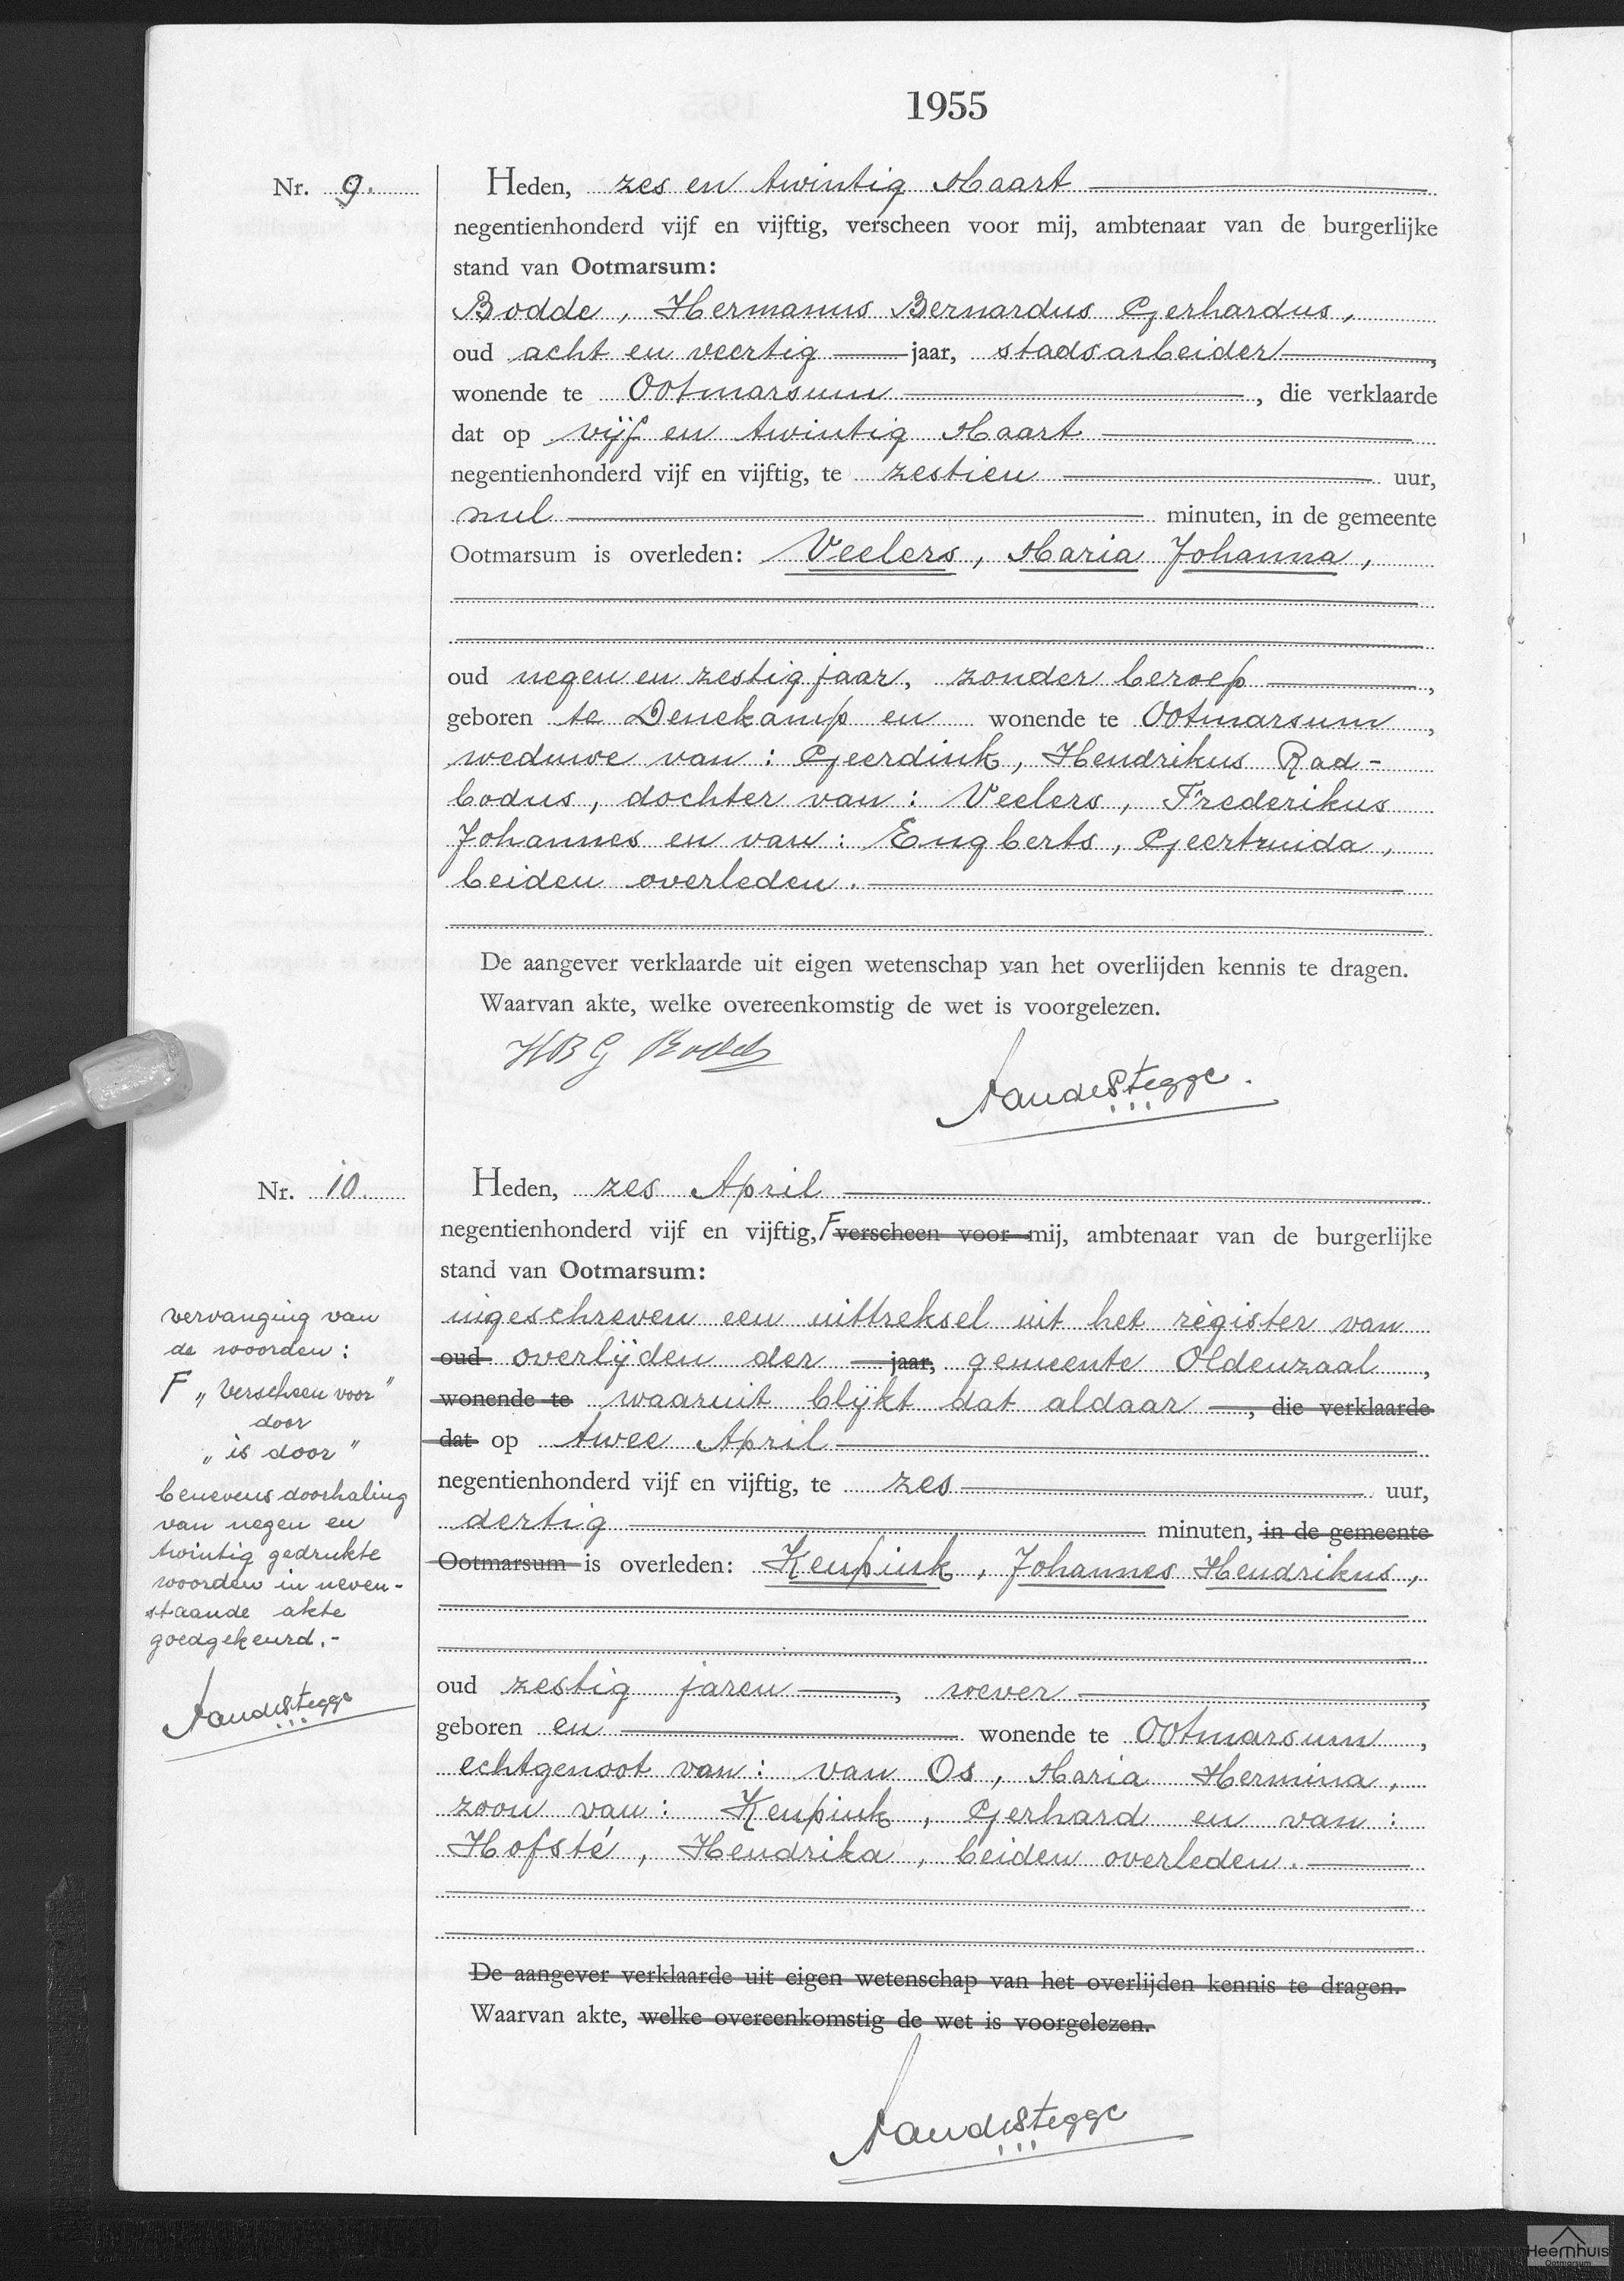 1955
Nr. 9.
Heden, zes en twintig Maart
negentienhonderd vijf en vijftig, verscheen voor mij, ambtenaar van de burgerlijke
stand van Ootmarsum:
Bodde, Hermanus Bernardus Gerhardus,
oud acht en veertig jaar, stadsarbeider,
wonende te Ootmarsum, die verklaarde
dat op vijf en twintig Maart
negentienhonderd vijf en vijftig, te zestien uur,
nul minuten, in de gemeente
Ootmarsum is overleden: Veelers, Maria Johanna,
oud negen en zestig jaar, zonder beroep,
geboren te Denekamp en wonende te Ootmarsum,
weduwe van: Geerdink, Hendrikus Rad-
bodus, dochter van: Veelers, Frederikus
Johannes en van: Engberts, Geertruida,
beiden overleden.
De aangever verklaarde uit eigen wetenschap van het overlijden kennis te dragen.
Waarvan akte, welke overeenkomstig de wet is voorgelezen.
HBG Bodde
Aandestegge.
Nr. 10.
Heden, zes April
negentienhonderd vijf en vijftig, F verscheen voor mij, ambtenaar van de burgerlijke
stand van Ootmarsum:
ingeschreven een uittreksel uit het register van
oud overlijden der jaar, gemeente Oldenzaal,
wonende te waaruit blijkt dat aldaar, die verklaarde
dat op twee April
negentienhonderd vijf en vijftig, te zes uur,
dertig minuten, in de gemeente
Ootmarsum is overleden: Keupink, Johannes Hendrikus,
oud zestig jaren, wever,
geboren en wonende te Ootmarsum,
echtgenoot van: van Os, Maria Hermina,
zoon van: Keupink, Gerhard en van:
Hofsté, Hendrika, beiden overleden.
De aangever verklaarde uit eigen wetenschap van het overlijden kennis te dragen.
Waarvan akte, welke overeenkomstig de wet is voorgelezen.
Aandestegge
vervanging van
de woorden:
F „Verscheen voor"
door
„is door"
benevens doorhaling
van negen en
twintig gedrukte
woorden in neven-
staande akte
goedgekeurd.-
Aandestegge
Heemhuis
Ootmarsum